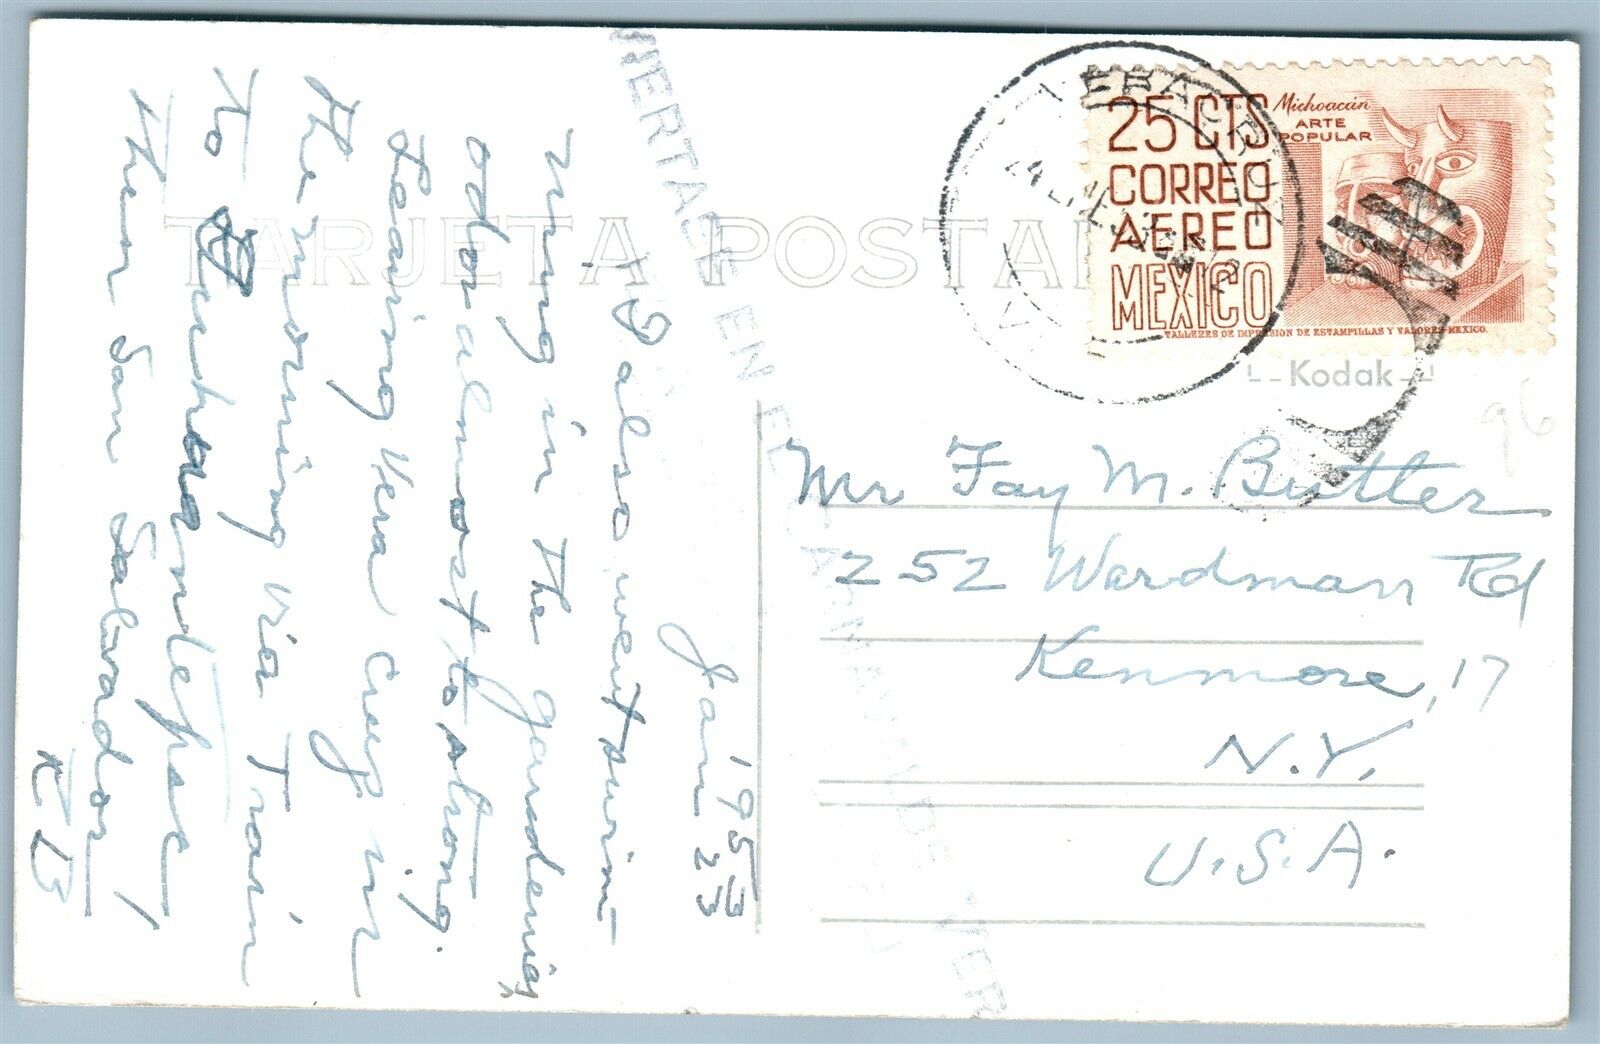 TARJETA POSTAL
1953
Jan 23
I also went swim-
ming in the gardenias,
odor almost to strong.
Leaving Vera Cruz in
the morning via Train
To
Then San Salvador
RB
25 CTS
CORREO
AEREO
MEXICO
Michoacán
ARTE
POPULAR
TALLERES DE IMPRESION DE ESTAMPILLAS Y VALORES-MEXICO.
VERACRUZ
Kodak
96
Mr Fay M. Butler
252 Wardman Rd
Kenmore, 17
N.Y.
U.S.A.